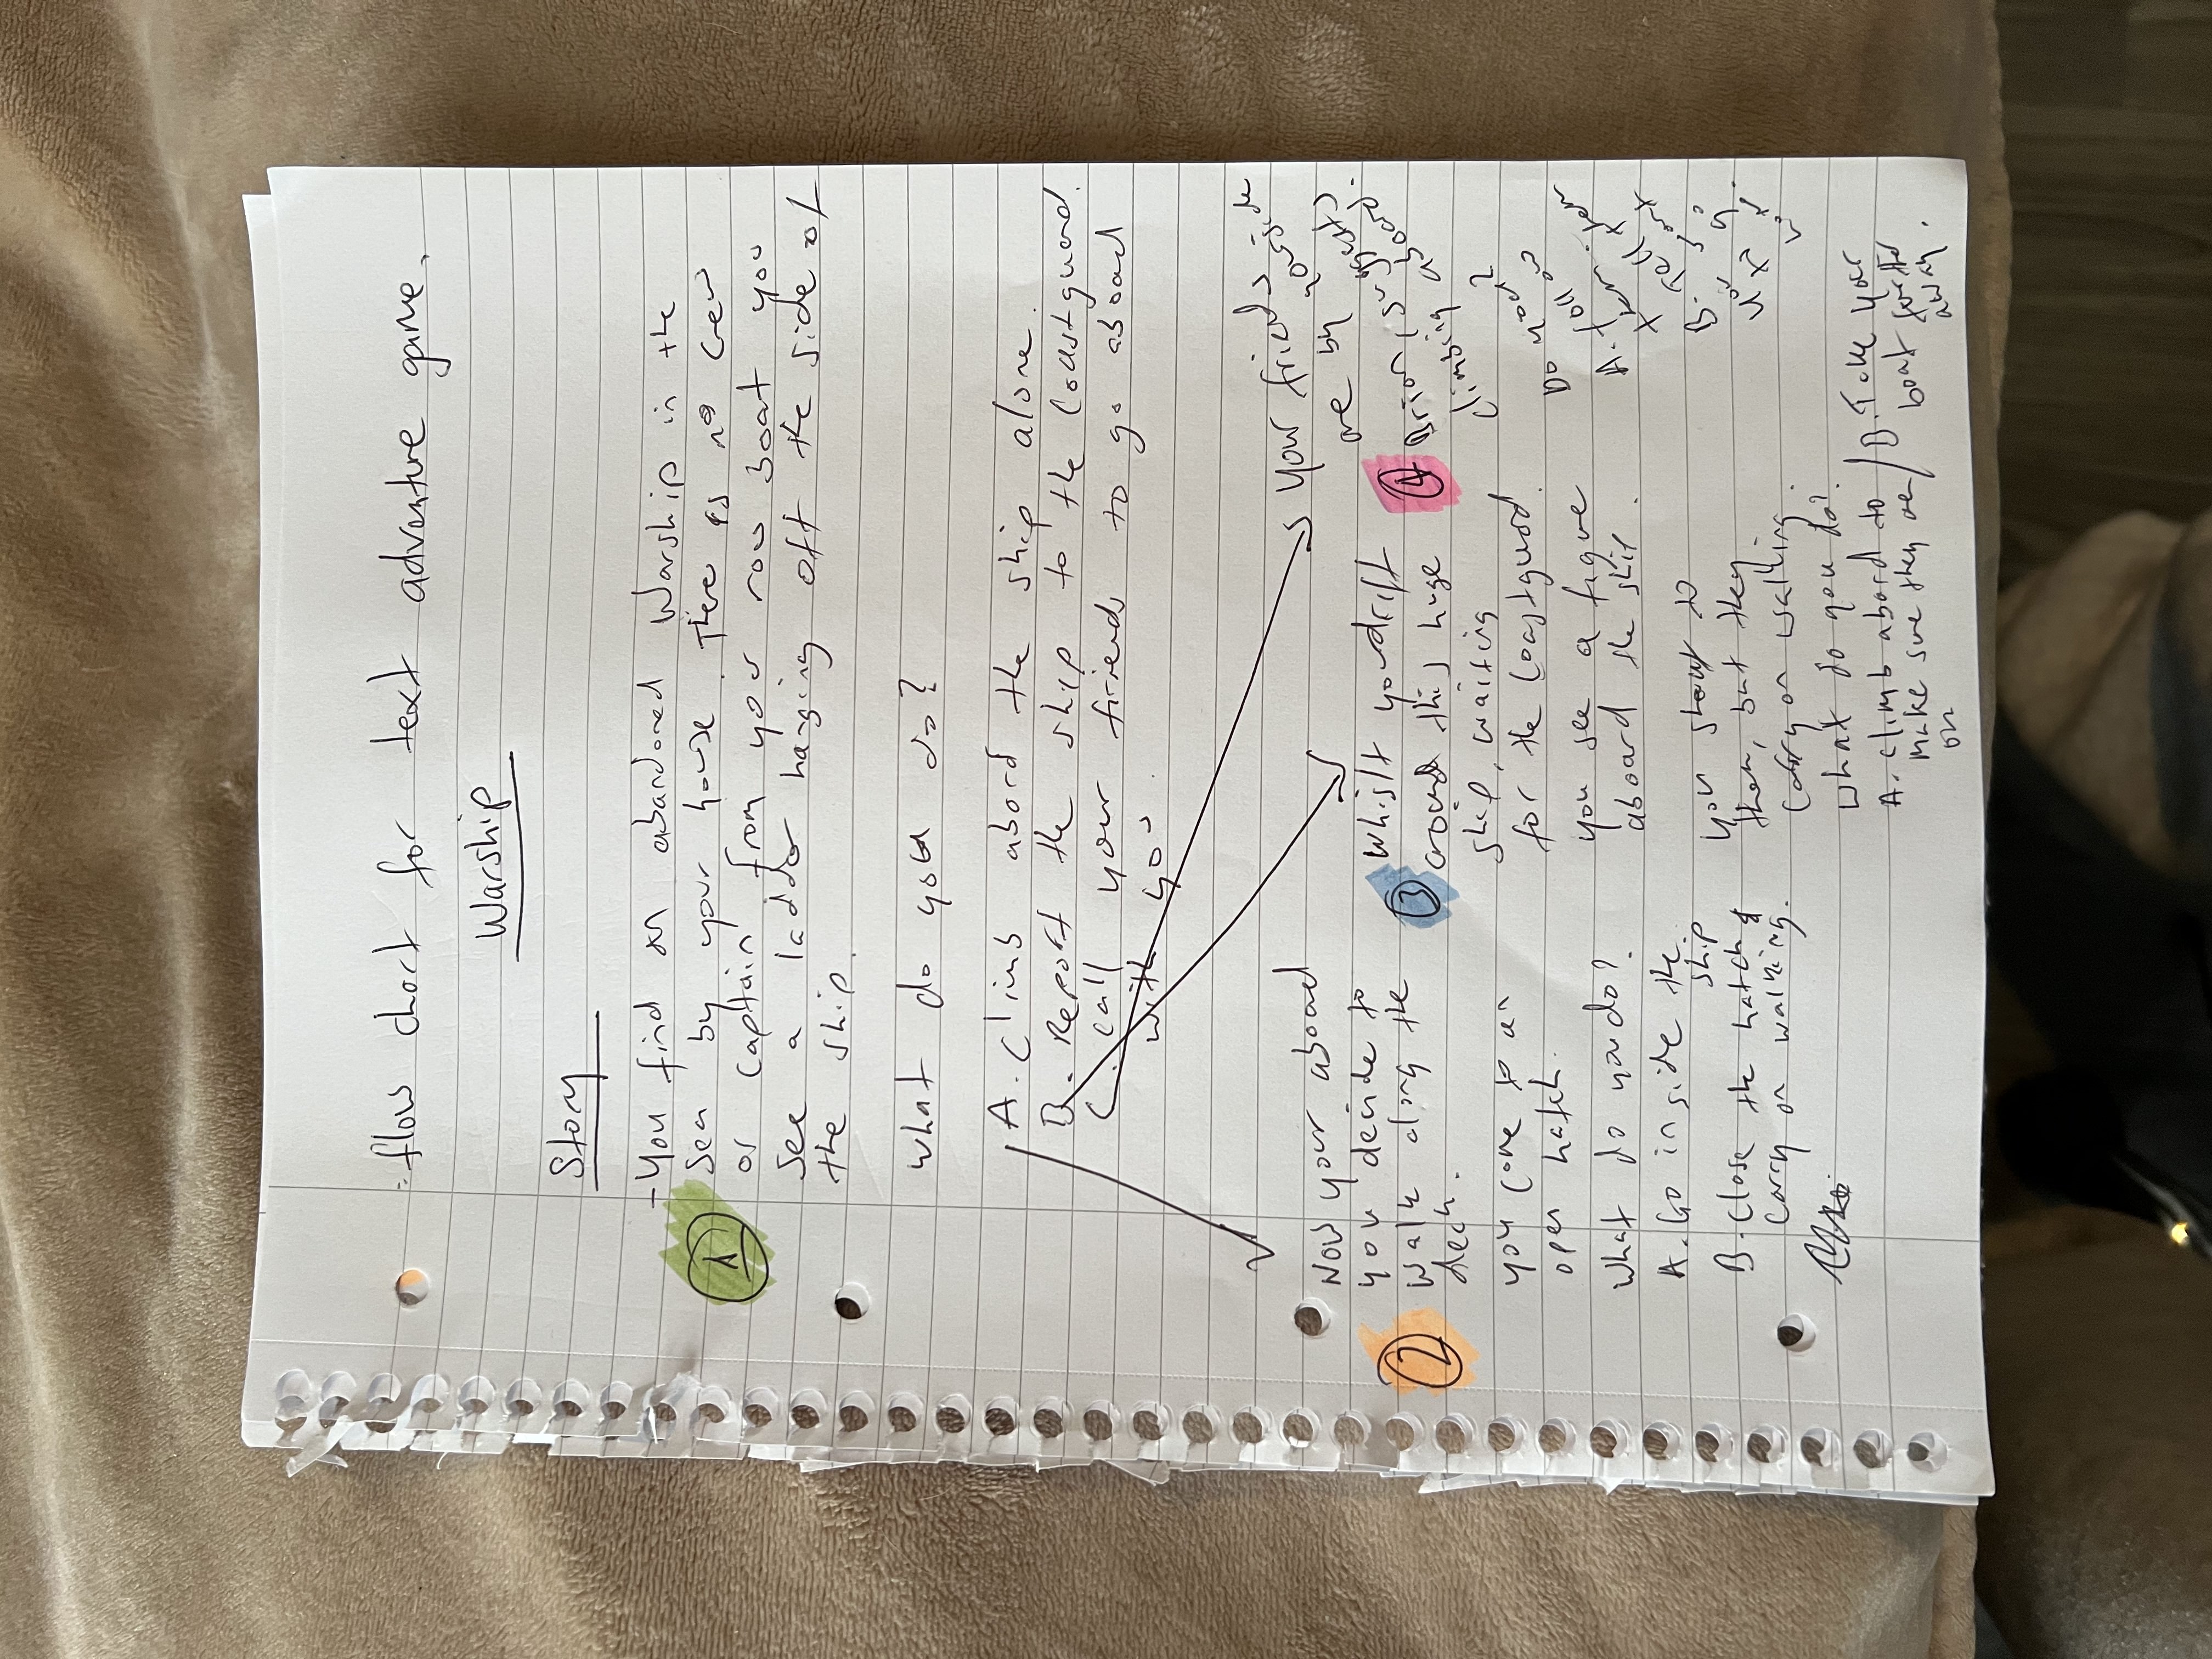 flow chart for text adventure game.
Warship
Story
- You find an abandoned Warship in the
sea by your house. There is no crew
or captain from your row boat you
see a ladder hanging off the side of
the ship.
1
what do you do?
A. Climb abord the ship alone.
B. Report the ship to the Coastguard.
C. call your friends to go aboard
with you.
2
Now your aboard
you decide to
walk along the
deck.
you come to an
open hatch.
What do you do?
A. Go inside the
ship
B. Close the hatch &
carry on walking.
3
Whislt you drift
around this huge
ship, waiting
for the Coastguard.
you see a figure
aboard the ship.
you shout to
them, but they
carry on walking.
What do you do?
A. climb abord to /
make sure they are
ok
B. Take your
boat further
away.
4
Your friends
are by yourside
Brian, suggests
climbing aboard.
Do you?
A. follow
them.
B. Tell them
you want
to go
home.